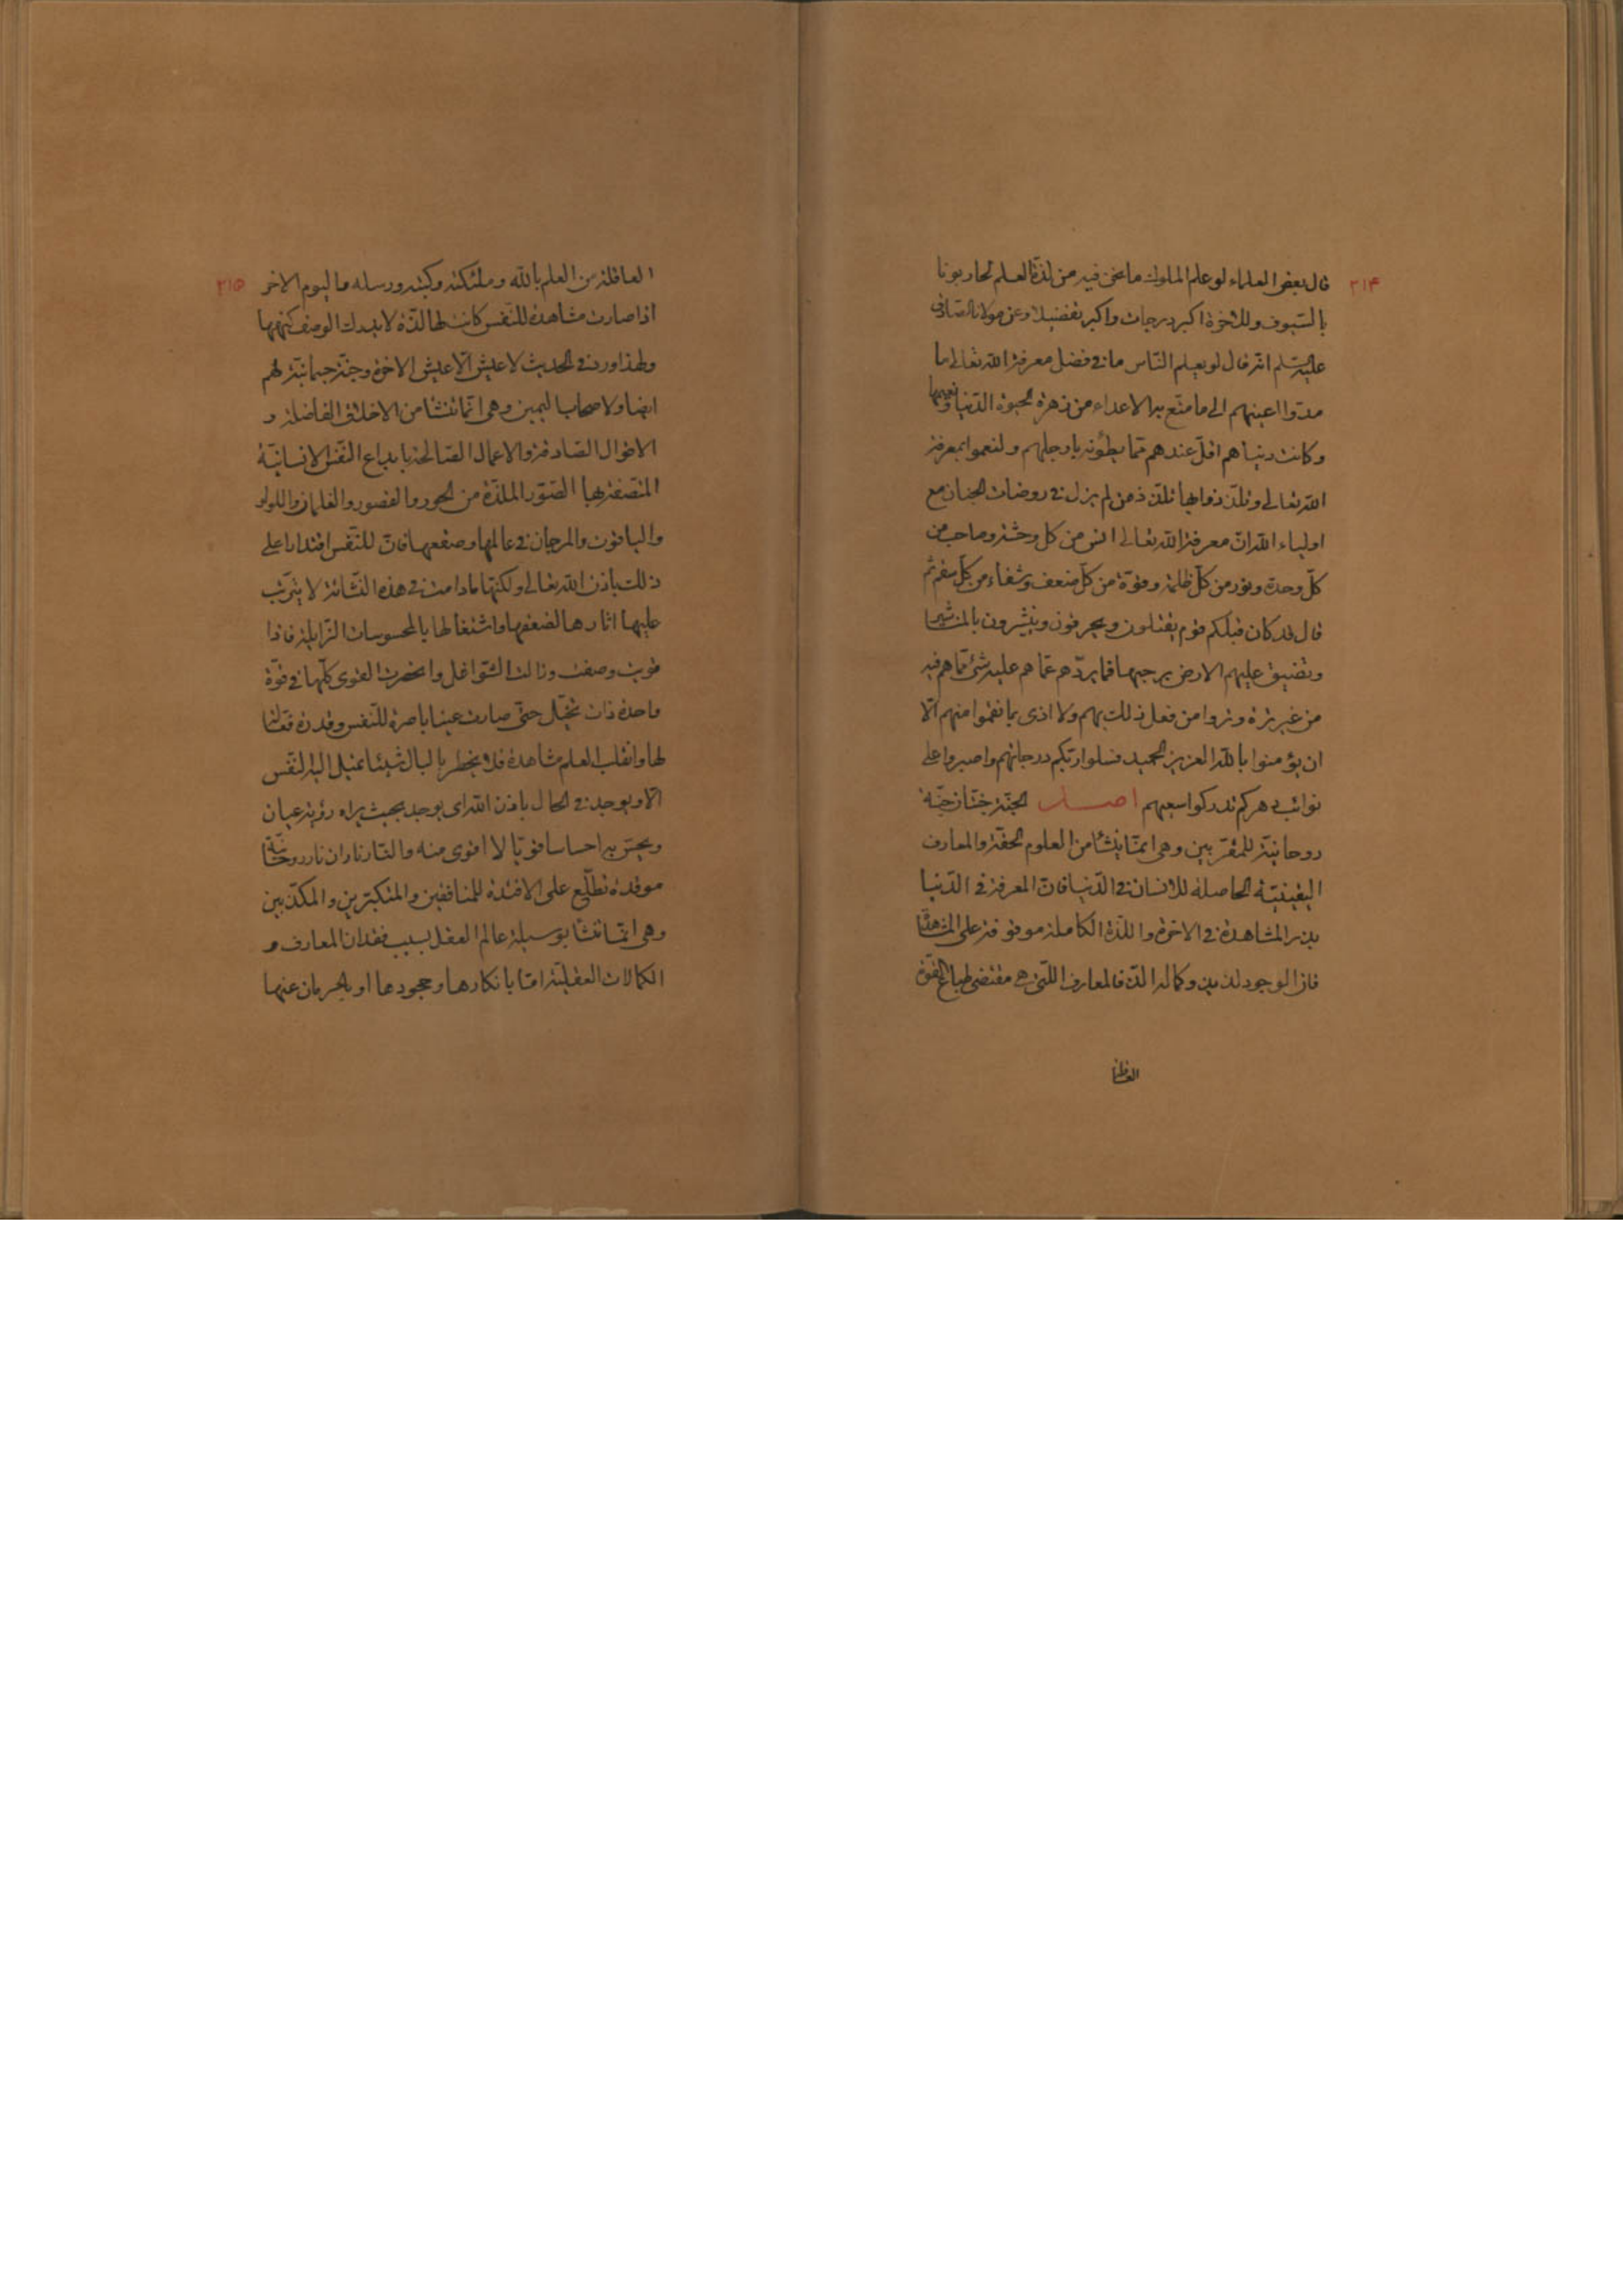 ٢١۴
قال بعض العلماء لو علم الملوك ما نحن فيه من لذة العلم لحاربونا
بالسيوف وللاخرة اكبر درجات واكبر تفضيلا وعن مولانا الصادق
عليه السلم انه قال لو يعلم الناس ما فى فضل معرفة الله تعالى ما
مدوا اعينهم الى ما متع به الاعداء من زهرة الحيوة الدنيا ونعيمها
وكانت دنياهم اقل عندهم مما يطؤنه بارجلهم ولنعموا بمعرفة
الله تعالى وتلذذوا بها تلذذ من لم يزل فى روضات الجنان مع
اولياء الله ان معرفة الله تعالى انس من كل وحشة وصاحب من
كل وحدة ونور من كل ظلمة وقوة من كل ضعف وشفاء من كل سقم ثم
قال قد كان قبلكم قوم يقتلون ويحرقون وينشرون بالمناشير
وتضيق عليهم الارض برحبها فما يردهم عما هم عليه شئ مما هم فيه
من غير ترة وتروا من فعل ذلك بهم ولا اذى بما نقموا منهم الا
ان يؤمنوا بالله العزيز الحميد فسلوا ربكم درجاتهم واصبروا على
نوائب دهركم تدركوا سعيهم اصل الجنة جنتان جنة
روحانية للمقربين وهى انما ينشأ من العلوم الحقة والمعارف
اليقينية الحاصلة للانسان فى الدنيا فان المعرفة فى الدنيا
بذر المشاهدة فى الاخرة واللذة الكاملة موقوفة على المشاهدة
فان الوجود لذيذ وكماله الذ فالمعارف اللتى هى مقتضى طباع القوة
العاقلة
٢١٥
العاقلة من العلم بالله وملئكته وكتبه ورسله واليوم الاخر
اذا صارت مشاهدة للنفس كانت لها لذة لا يدرك الوصف كنهها
ولهذا ورد فى الحديث لا عيش الا عيش الاخرة وجنة جسمانية لهم
ايضا ولاصحاب اليمين وهى انما تنشا من الاخلاق الفاضلة و
الاقوال الصادقة والاعمال الصالحة بابداع النفس الانسانية
المتصفة بها الصور الملذة من الحور والقصور والغلمان واللؤلؤ
والياقوت والمرجان فى عالمها وصقعها فان للنفس اقتدارا على
ذلك باذن الله تعالى ولكنها ما دامت فى هذه النشائة لا يترتب
عليها اثارها لضعفها واشتغالها بالمحسوسات الزايلة فاذا
قويت وصفت وزالت الشواغل وانحصرت القوى كلها فى قوة
واحدة ذات تخيل حتى صارت عينا باصرة للنفس وقدرة فعالة
لها وانقلب العلم مشاهدة فلا يخطر بالبال شيئا تميل اليه النفس
الا ويوجد فى الحال باذن الله اى يوجد بحيث يراه رؤية عيان
ويحس به احساسا قويا لا اقوى منه والنار ناران نار روحانية
موقدة تطلع على الافئدة للمنافقين والمتكبرين والمكذبين
وهى انما تنشا بوسيلة عالم العقل بسبب فقدان المعارف و
الكمالات العقلية اما بانكارها وجحودها او بالحرمان عنها